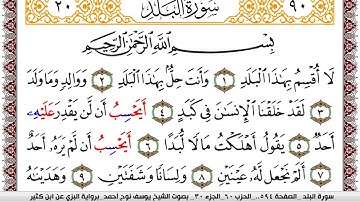 ٩٠ سورة البلد ٢٠
بِسْمِ اللَّهِ الرَّحْمَٰنِ الرَّحِيمِ
لَا أُقْسِمُ بِهَٰذَا الْبَلَدِ ١ وَأَنتَ حِلٌّ بِهَٰذَا الْبَلَدِ ٢ وَوَالِدٍ وَمَا وَلَدَ
٣ لَقَدْ خَلَقْنَا الْإِنسَانَ فِي كَبَدٍ ٤ أَيَحْسِبُ أَن لَّن يَقْدِرَ عَلَيْهِۦ
أَحَدٌ ٥ يَقُولُ أَهْلَكْتُ مَالًا لُّبَدًا ٦ أَيَحْسِبُ أَن لَّمْ يَرَهُۥ أَحَدٌ
٧ أَلَمْ نَجْعَل لَّهُۥ عَيْنَيْنِ ٨ وَلِسَانًا وَشَفَتَيْنِ ٩ وَهَدَيْنَاهُ
سورة البلد _الصفحة ٥٩٤_ الحزب ٦٠_الجزء ٣٠_ بصوت الشيخ يوسف نوح احمد_ برواية البزي عن ابن كثير